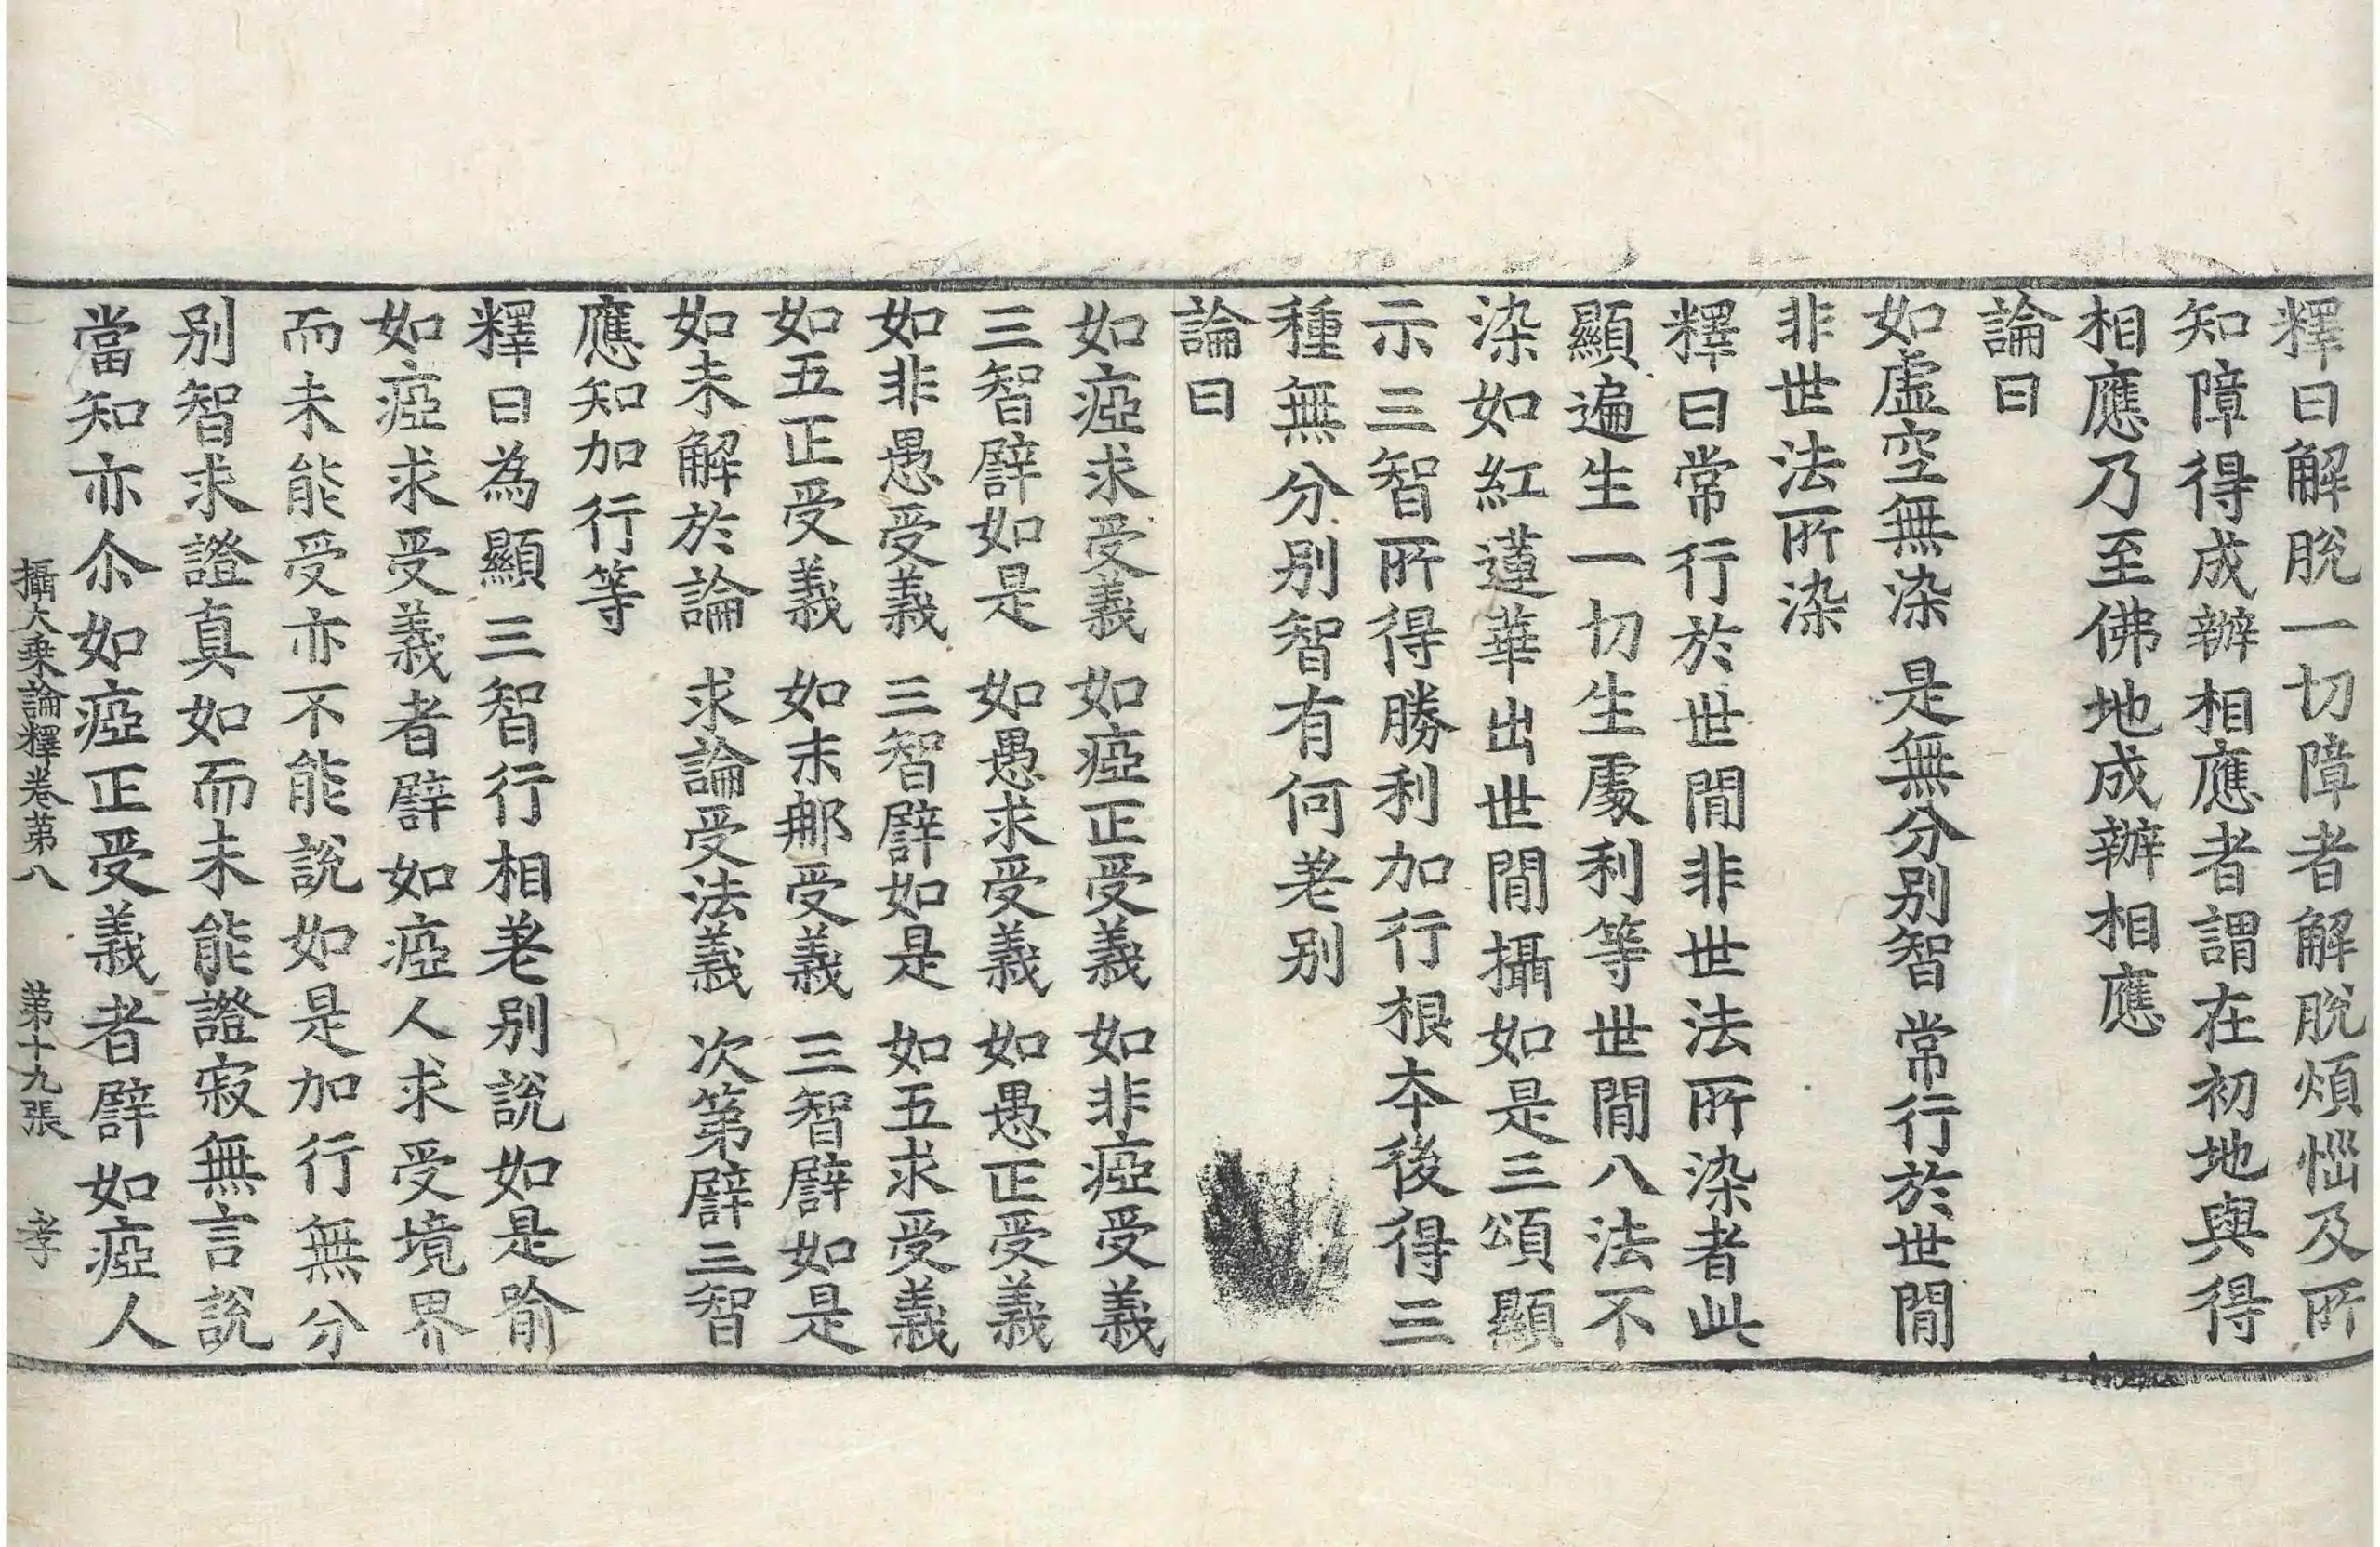 釋曰解脫一切障者解脫煩惱及所
知障得成辦相應者謂在初地與得
相應乃至佛地成辦相應
論曰
如虛空無染　是無分别智　常行於世間
非世法所染
釋曰常行於世間非世法所染者此
顯遍生一切生處利等世間八法不
染如紅蓮華出世間攝如是三頌顯
示三智所得勝利加行根本後得三
種無分别智有何差别
論曰
如瘂求受義　如瘂正受義　如非瘂受義
三智譬如是　如愚求受義　如愚正受義
如非愚受義　三智譬如是　如五求受義
如五正受義　如末那受義　三智譬如是
如未解於論　求論受法義　次第譬三智
應知加行等
釋曰為顯三智行相差别說如是喻
如瘂求受義者譬如瘂人求受境界
而未能受亦不能說如是加行無分
别智求證真如而未能證寂無言說
當知亦尒如瘂正受義者譬如瘂人
攝大乗論釋卷第八　第十九張　孝